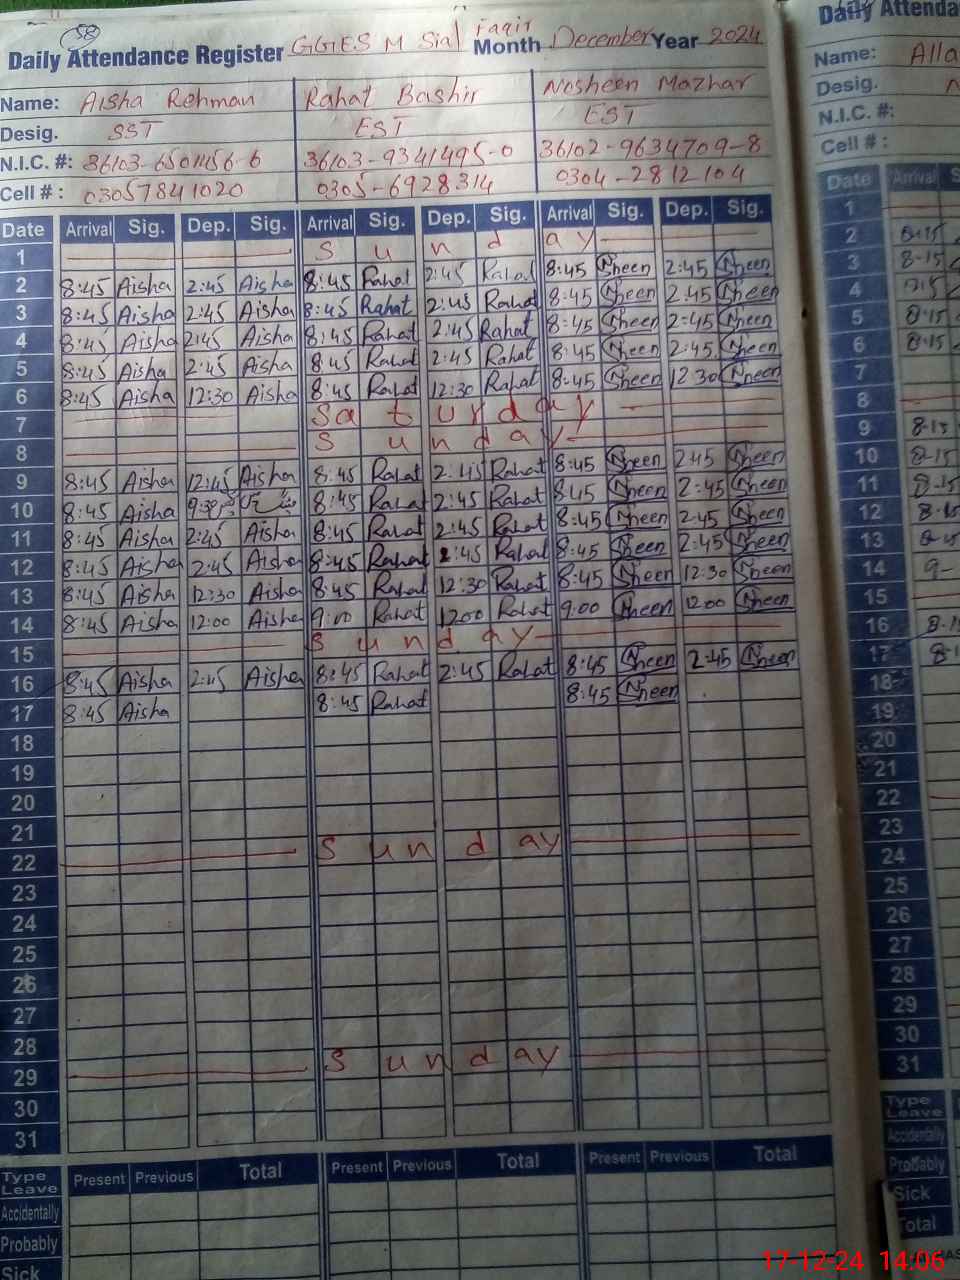 58
Daily Attendance Register GGES M Sial Faqir Month December Year 2024
Name: Aisha Rehman Rahat Bashir Nosheen Mazhar
Desig. SST EST EST
N.I.C. #: 36103-6501156-6 36103-9341495-0 36102-9634709-8
Cell #: 03057841020 0305-6928314 0304-2812104
Date Arrival Sig. Dep. Sig. Arrival Sig. Dep. Sig. Arrival Sig. Dep. Sig.
1 Sunday
2 8:45 Aisha 2:45 Aisha 8:45 Rahat 2:45 Rahat 8:45 Nsheen 2:45 Nsheen
3 8:45 Aisha 2:45 Aisha 8:45 Rahat 2:45 Rahat 8:45 Nsheen 2:45 Nsheen
4 8:45 Aisha 2:45 Aisha 8:45 Rahat 2:45 Rahat 8:45 Nsheen 2:45 Nsheen
5 8:45 Aisha 2:45 Aisha 8:45 Rahat 2:45 Rahat 8:45 Nsheen 2:45 Nsheen
6 8:45 Aisha 12:30 Aisha 8:45 Rahat 12:30 Rahat 8:45 Nsheen 12:30 Nsheen
7 Saturday
8 Sunday
9 8:45 Aisha 12:45 Aisha 8:45 Rahat 2:45 Rahat 8:45 Nsheen 2:45 Nsheen
10 8:45 Aisha 8:45 Rahat 2:45 Rahat 8:45 Nsheen 2:45 Nsheen
11 8:45 Aisha 2:45 Aisha 8:45 Rahat 2:45 Rahat 8:45 Nsheen 2:45 Nsheen
12 8:45 Aisha 2:45 Aisha 8:45 Rahat 2:45 Rahat 8:45 Nsheen 2:45 Nsheen
13 8:45 Aisha 12:30 Aisha 8:45 Rahat 12:30 Rahat 8:45 Nsheen 12:30 Nsheen
14 8:45 Aisha 12:00 Aisha 9:00 Rahat 1200 Rahat 9:00 Nsheen 1200 Nsheen
15 Sunday
16 8:45 Aisha 2:45 Aisha 8:45 Rahat 2:45 Rahat 8:45 Nsheen 2:45 Nsheen
17 8:45 Aisha 8:45 Rahat 8:45 Nsheen
18
19
20
21
22 Sunday
23
24
25
26
27
28
29 Sunday
30
31
Type Leave Present Previous Total Present Previous Total Present Previous Total
Accidentally
Probably
Sick
Daily Attenda
Name: Alla
Desig.
N.I.C. #:
Cell #:
Date Arrival S
1
2 8-15
3 8-15
4
5 8-15
6 8-15
7
8
9 8-15
10 8-15
11 8-15
12 8-15
13
14 9-
15
16 8-1
17 8-1
18
19
20
21
22
23
24
25
26
27
28
29
30
31
Type Leave
Accidentally
Probably
Sick
Total
17-12-24 14:06